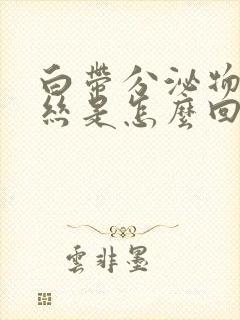 白帶分泌物
絲是怎麼回
雲非墨